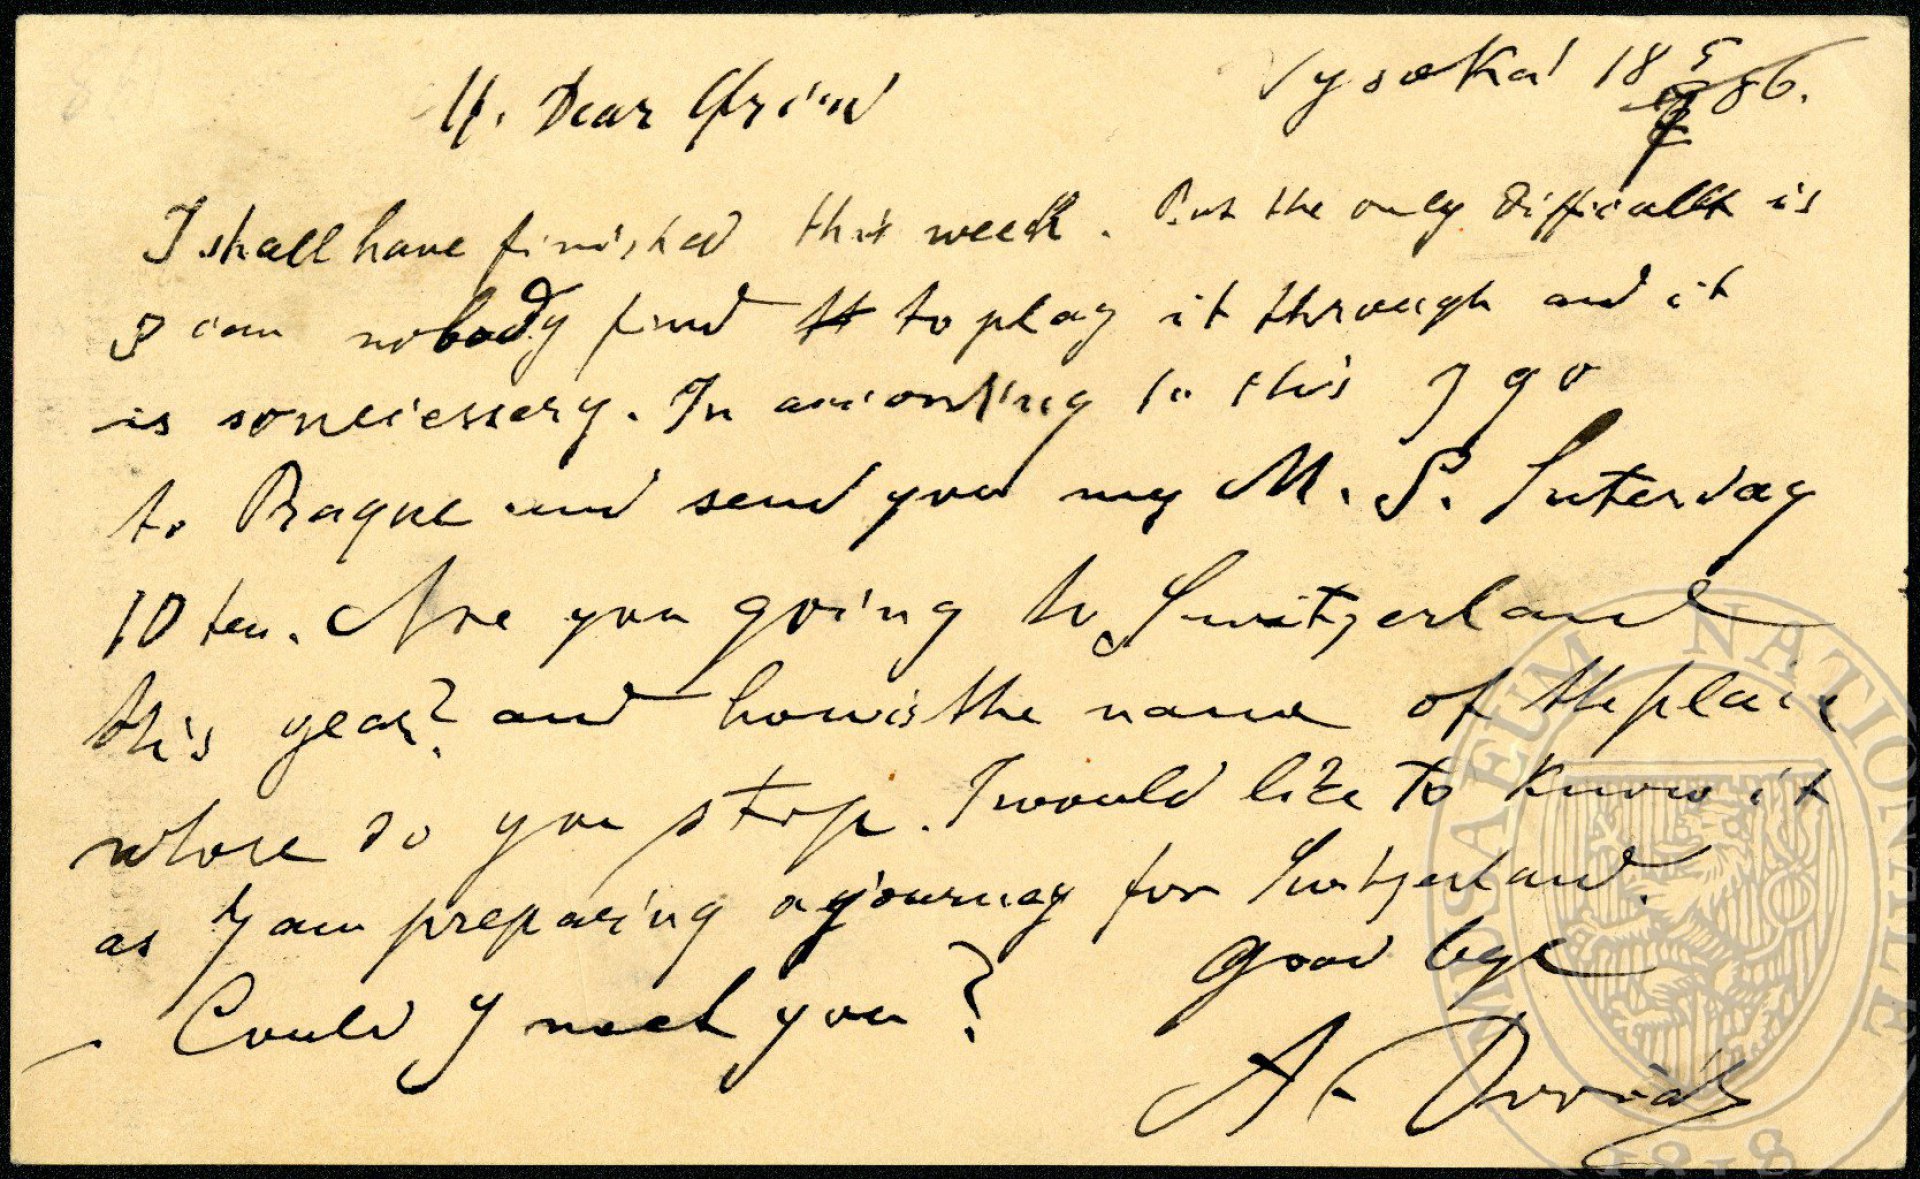 Vysoká 18 5/7 86.
M. Dear Friend
I shall have finished this week. But the only difficult is
I can nobody find to play it through and it
is so neciessery. In acconding to this I go
to Prague and send you my M. S. Suterday
10 ten. Are you going to Switzerland
this year? and how is the name of the place
whore do you stop. I would like to know it
as I am preparing a journey for Switzerland.
Could I meet you? Good bye
A. Dvořák
MUSAEUM NATIONALE
1818